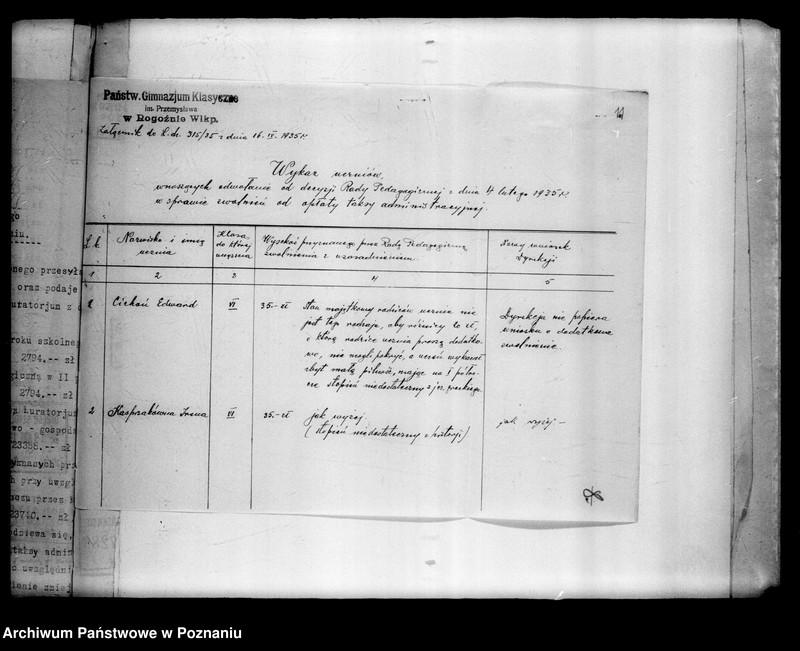 Państw. Gimnazjum Klasyczne
im. Przemysława
w Rogoźnie Wlkp.
Załącznik do L.dz. 315/35 z dnia 16. IV. 1935 r.
11
Wykaz uczniów,
wnoszących odwołanie od decyzji Rady Pedagogicznej z dnia 4 lutego 1935 r.
w sprawie zwolnień od opłaty taksy administracyjnej.
L. k. Nazwisko i imię ucznia
Klasa do której uczęszcza
Wysokość przyznanego przez Radę Pedagogiczną zwolnienia z uzasadnieniem
wniosek Dyrekcji
1 2 3 4 5
1 Cichoń Edward VI 35.- zł Stan majątkowy rodziców ucznia nie
jest tego rodzaju, aby różnicy 20 zł,
o którą rodzice ucznia proszą dodatko-
wo, nie mogli pokryć, a uczeń wykazał
zbyt małą pilność, mając na I półro-
cze stopień niedostateczny z jęz. greckiego.
Dyrekcja nie popiera
wniosku o dodatkowe
zwolnienie.
2 Kasprzakówna Irena VI 35.- zł jak wyżej.
(stopień niedostateczny z historji)
jak wyżej -
go
iu.
nego przesył
oraz podaje
uratorjum z
roku szkolne
2794.-- zł
giczną w II
2794.-- zł
kuratorjum
wo - gospod
23386.-- zł
ch przy uwzgl
przez
23740.-- zł
dziewa się,
taksy admin
uwzględni
Archiwum Państwowe w Poznaniu